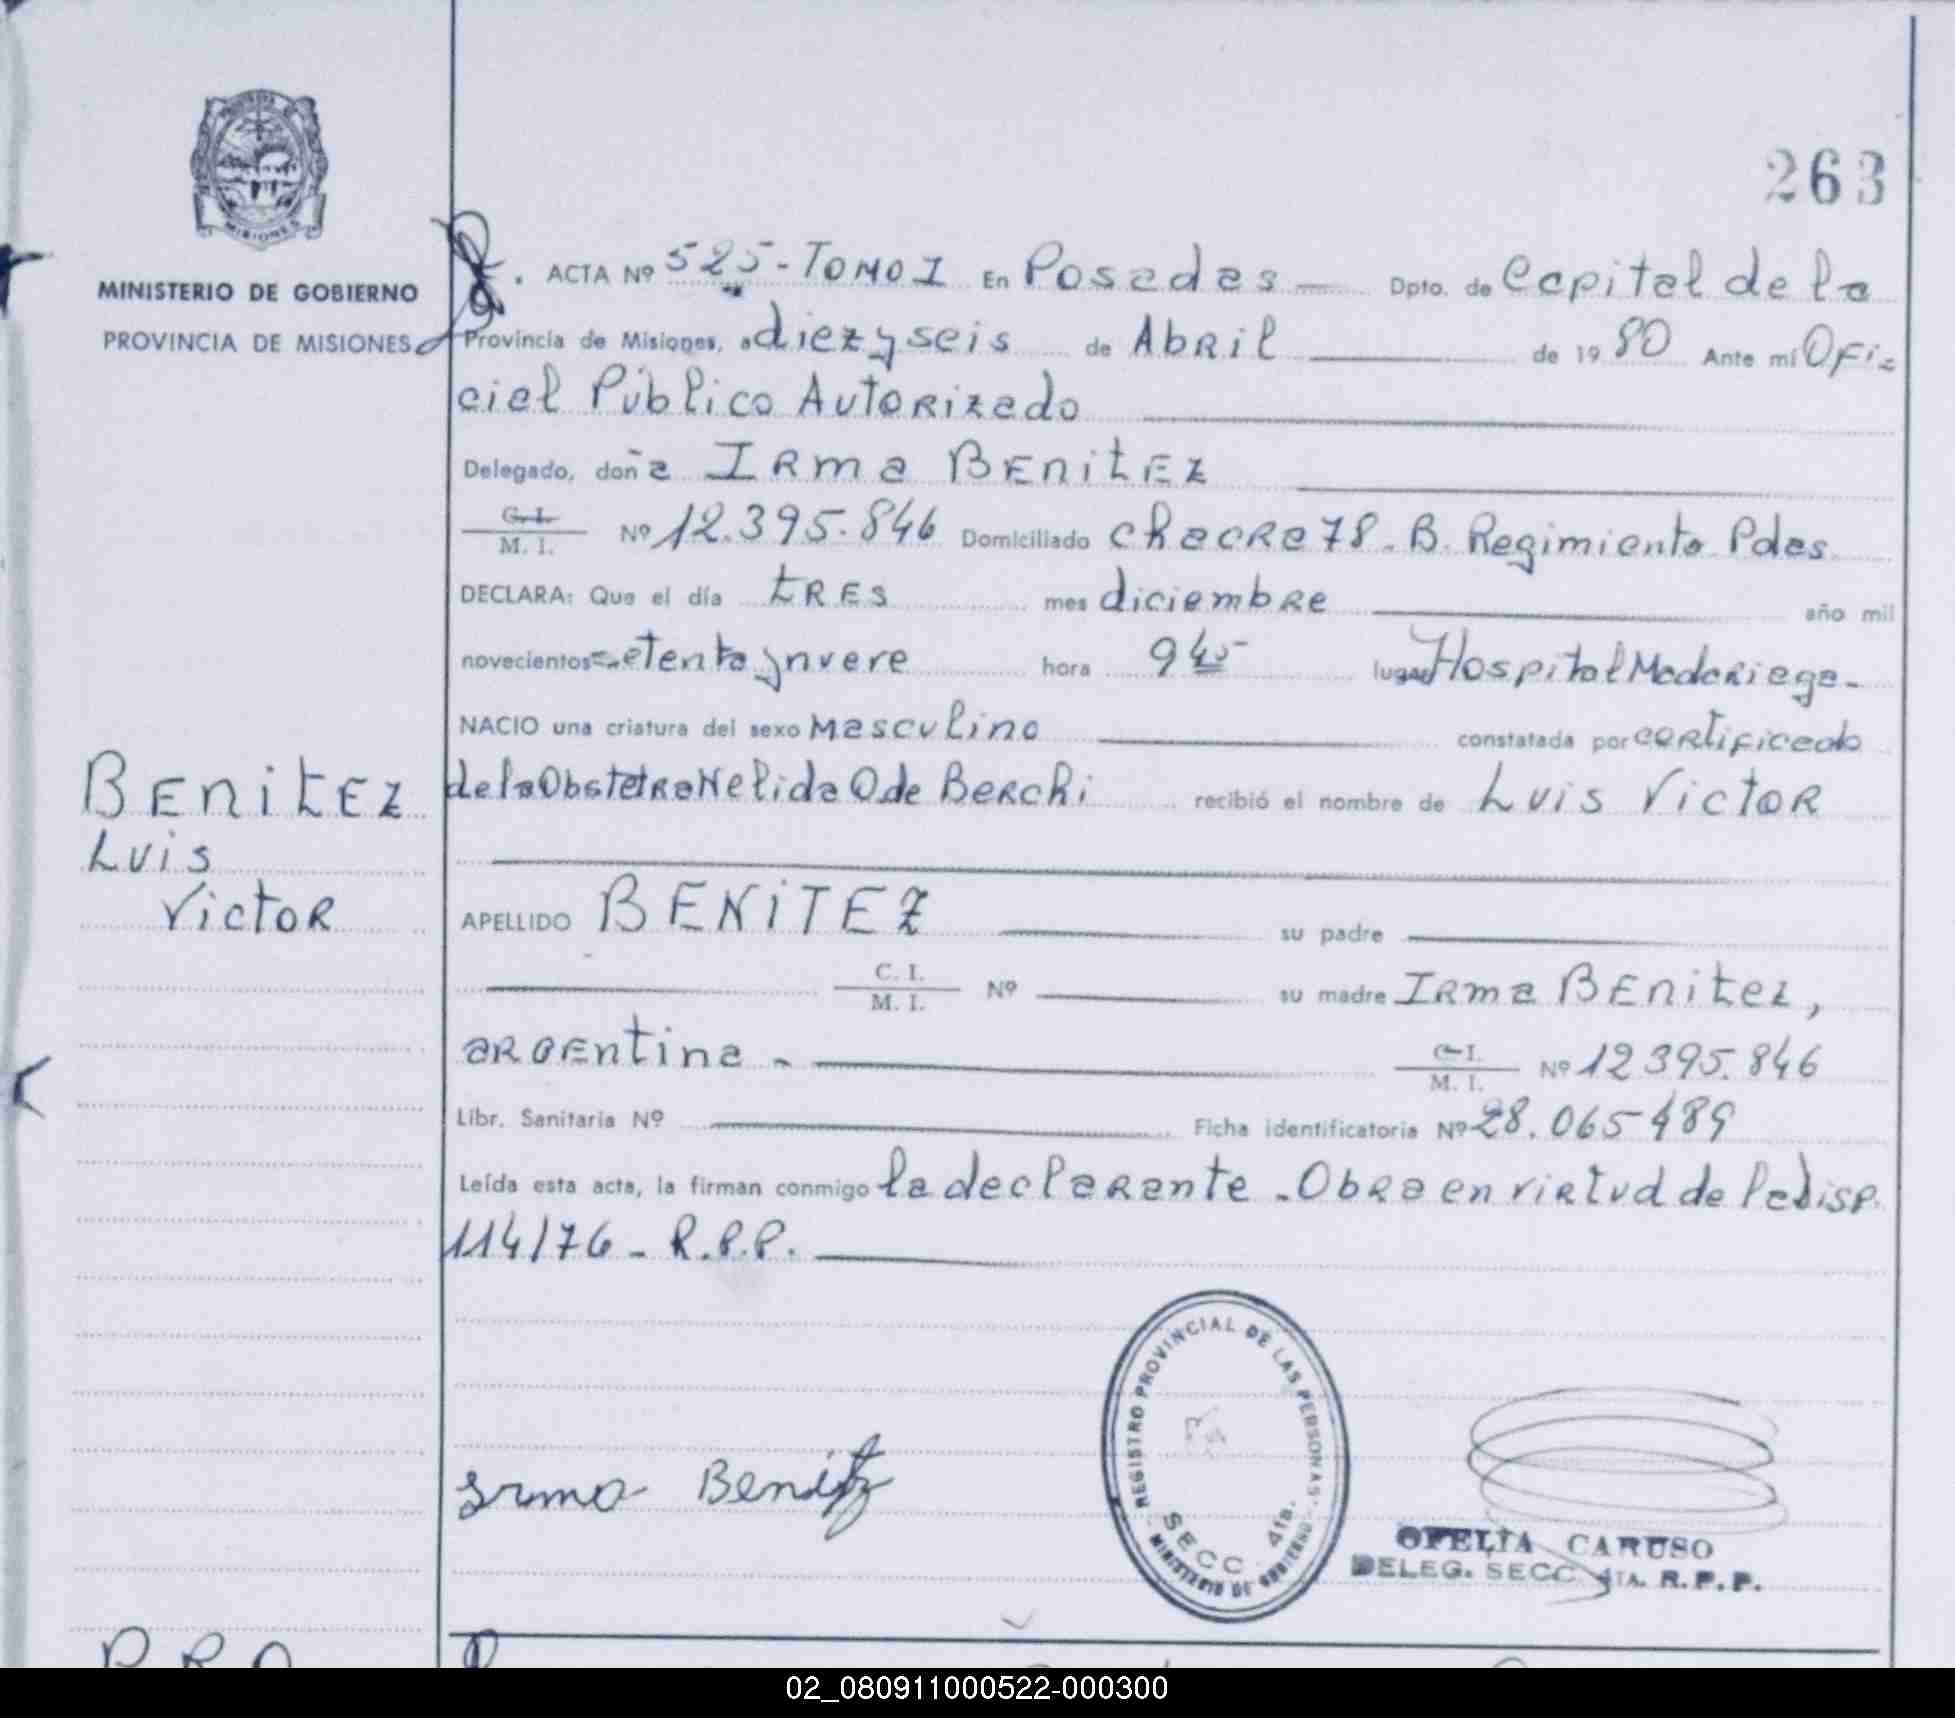 263
MISIONES
MINISTERIO DE GOBIERNO
PROVINCIA DE MISIONES
ACTA Nº 525 - TOMO I En Posadas Dpto. de Capital de la
Provincia de Misiones, a diez y seis de Abril de 19 80 Ante mí Ofi=
cial Público Autorizado
Delegado, doña Irma Benitez
C. I.
M. I. Nº 12.395.846 Domiciliado chacra 78 - B. Regimiento Pdas
DECLARA: Que el día tres mes diciembre año mil
novecientos setenta y nueve hora 9 45 lugar Hospital Madariaga -
NACIO una criatura del sexo Masculino constatada por certificado
de la Obstetra Nelida O. de Berchi recibió el nombre de Luis Victor
Benitez
Luis
Victor
APELLIDO BENITEZ su padre
C. I.
M. I. Nº su madre Irma Benitez,
argentina - C. I.
M. I. Nº 12 395.846
Libr. Sanitaria Nº Ficha identificatoria Nº 28.065 489
Leída esta acta, la firman conmigo la declarante - Obra en virtud de la disp.
114/76 - R.P.P.
Irma Benitez
REGISTRO PROVINCIAL DE LAS PERSONAS
SECC 4ta.
MINISTERIO DE GOBIERNO
OFELIA CARUSO
DELEG. SECC. 4TA. R.P.P.
02_080911000522-000300